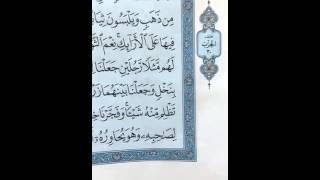 مِن ذَهَبٍ وَيَلْبَسُونَ ثِيَا
فِيهَا عَلَى ٱلْأَرَآئِكِ ۚ نِعْمَ ٱلثَّوَ
لَهُم مَّثَلًا رَّجُلَيْنِ جَعَلْنَا
بِنَخْلٍ وَجَعَلْنَا بَيْنَهُمَا زَرْ
تَظْلِم مِّنْهُ شَيْـًٔا ۚ وَفَجَّرْنَا خِ
لِصَـٰحِبِهِۦ وَهُوَ يُحَاوِرُهُۥٓ
الحزب